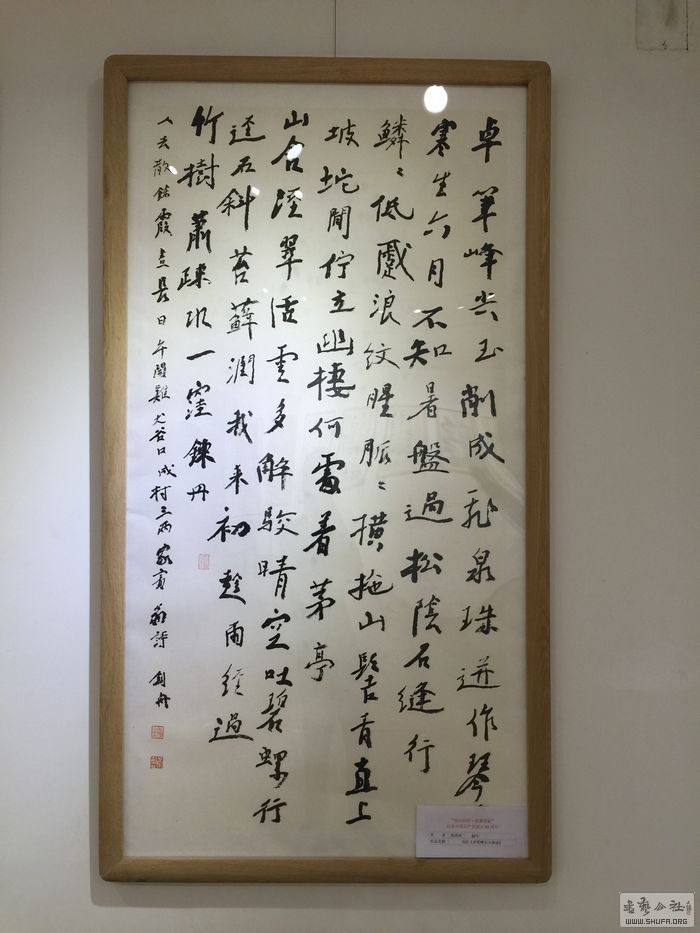 卓筆峰尖玉削成飛泉珠迸作琴
寒生六月不知暑盤過松陰石縫行
鱗〻低蹙浪紋腥脈〻橫拖山髻青直上
坡坨閒佇立幽棲何處着茅亭
山合溼翠活雲多解駮晴空吐碧螺行
逕石斜苔蘚潤我來初趁雨經過
竹樹蕭疎一窪鍊丹
人去散餘霞長日午聞雞犬谷口成村三兩家賓翁詩
書藝公社
WWW.SHUFA.ORG